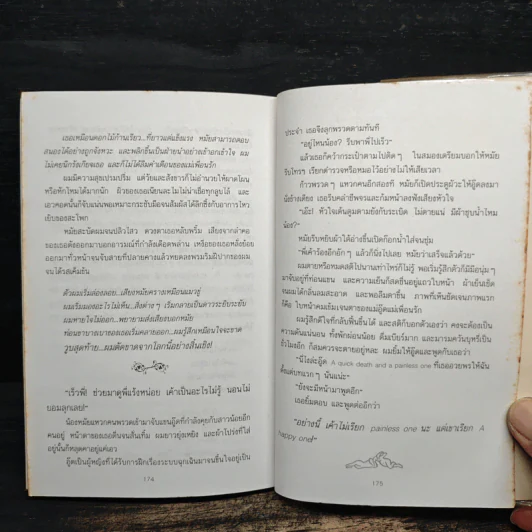 เธอเหมือนดอกไม้ก้านเรียว...ที่ยาวแต่แข็งแรง หมัยสามารถตอบ
สนองได้อย่างถูกจังหวะ และพลิกขึ้นเป็นฝ่ายนำอย่างเข้าอกเข้าใจ ผม
ไม่เคยนึกรังเกียจเธอ และก็ไม่ได้ลืมคำเตือนของแม่เพื่อนรัก
ผมมีความสุขเปรมปรีม แต่วัยและสังขารก็ไม่อำนวยให้ผาดโผน
หรือหักโหมได้มากนัก ผิวของเธอเนียนละไมไม่น่าเชื่อทุกลูบไล้ และ
เอวคอดนั้นก็จับแน่นพอเหมาะกระชับมือจนสัมผัสได้ลึกซึ้งกับอาการไหว
เยิบของสะโพก
หมัยสะบัดผมจนปลิวไสว ดวงตาเธอหลับพริ้ม เสียงจากลำคอ
ของเธอดังออกมาบอกอารมณ์ที่กำลังเตลิดพล่าน เหงื่อของเธอหลั่งย้อย
ออกมาทั่วหน้าจนจับสายที่ปลายคางแล้วหยดลงพรมริมฝีปากของผม
จนได้รสเค็มข้น
ตัวผมเริ่มล่องลอย...เสียงหมัยครางเหมือนแมวขู่
ผมเริ่มมองอะไรไม่เห็น...สิ่งต่าง ๆ เริ่มกลายเป็นดาวระยิบระยับ
ผมหายใจไม่ออก...พยายามส่งเสียงบอกหมัย
ท่อนขาบางเบาของเธอเริ่มคลายออก...ผมรู้สึกเหมือนใจจะขาด
วูบสุดท้าย...ผมตัดขาดจากโลกนี้อย่างสิ้นเชิง!
"เร็วพี่! ช่วยมาดูพี่แจ้งหน่อย เค้าเป็นอะไรไม่รู้ นอนไม่
ยอมลุกเลย!"
น้องหมัยแหวกคนพรวดเข้ามาจับแขนอู๊ดที่กำลังคุยกับสาวน้อยอีก
คนอยู่ หน้าตาของเธอตื่นจนลิ้นทึ่ม ผมยาวยุ่งเหยิง และผ้าโปร่งที่ใส่
อยู่นั้นก็หลุดคาอยู่แค่เอว
อู๊ดเป็นผู้หญิงที่ได้รับการฝึกเรื่องระบบฉุกเฉินมาจนชินใจอยู่เป็น
174
ประจำ เธอจึงลุกพรวดตามทันที
"อยู่ไหนน้อง? รีบพาพี่ไปเร็ว"
แล้วเธอก็คว้ากระเป๋าตามไปติด ๆ ในสมองเตรียมบอกให้หมัย
รีบโทรฯ เรียกตำรวจหรือหมอไว้อย่างไม่ให้เสียเวลา
ก้าวพรวด ๆ แหวกคนอีกสองที หมัยก็เปิดประตูผัวะให้อู๊ดลงมา
นั่งข้างเตียง เธอรีบคลำชีพจรและก้มหน้าลงฟังเสียงหัวใจ
"เม๊ะ! หัวใจเต้นตูมตามยังกับระเบิด ไม่ตายแน่ มีผ้าชุบน้ำไหม
น้อง?"
หมัยรีบหยิบผ้าได้อ่างขึ้นเปิดก๊อกน้ำใส่จนชุ่ม
"พี่เค้าร้องอึกอักๆ แล้วก็นิ่งไปเลย หมัยว่าเสร็จไม้แล้วด้วย"
ผมสายหรือหมดสติไปนานเท่าไหร่ก็ไม่รู้ พอเริ่มรู้สึกตัวก็มีมือนุ่ม ๆ
มาจับอยู่ที่ท่อนแขน และความเย็นก็สดชื่นอยู่แถวใบหน้า ผ้าเย็นเช็ด
จนผมได้กลิ่นลมสะอาด และพอลืมตาขึ้น ภาพที่เห็นชัดเจนภาพแรก
ก็คือ ใบหน้าคมเข้มเจนตาของแม่อู๊ดแม่เพื่อนรัก
ผมรู้สึกดีใจที่กลับฟื้นขึ้นได้ และสติก็บอกตัวเองว่า คงจะต้องเป็น
ความดันแน่นอน ทั้งพักผ่อนน้อย ดื่มเบียร์มาก และมารบควันบุหรี่เป็น
ชั่วโมงอีก ก็สมควรจะตายอยู่หละ ผมยิ้มให้อู๊ดและพูดกับเธอว่า
"นี่ไงล่ะอู๊ด A quick death and a painless one ที่เธออวยพรให้ฉัน
ตั้งแต่บทแรกๆ นั่นแน่ะ"
"ยังจะมีหน้ามาพูดอีก"
เธอยิ้มตอบ และพูดต่ออีกว่า
"อย่างนี้ เค้าไม่เรียก painless one นะ แต่เขาเรียก A
happy one!"
175